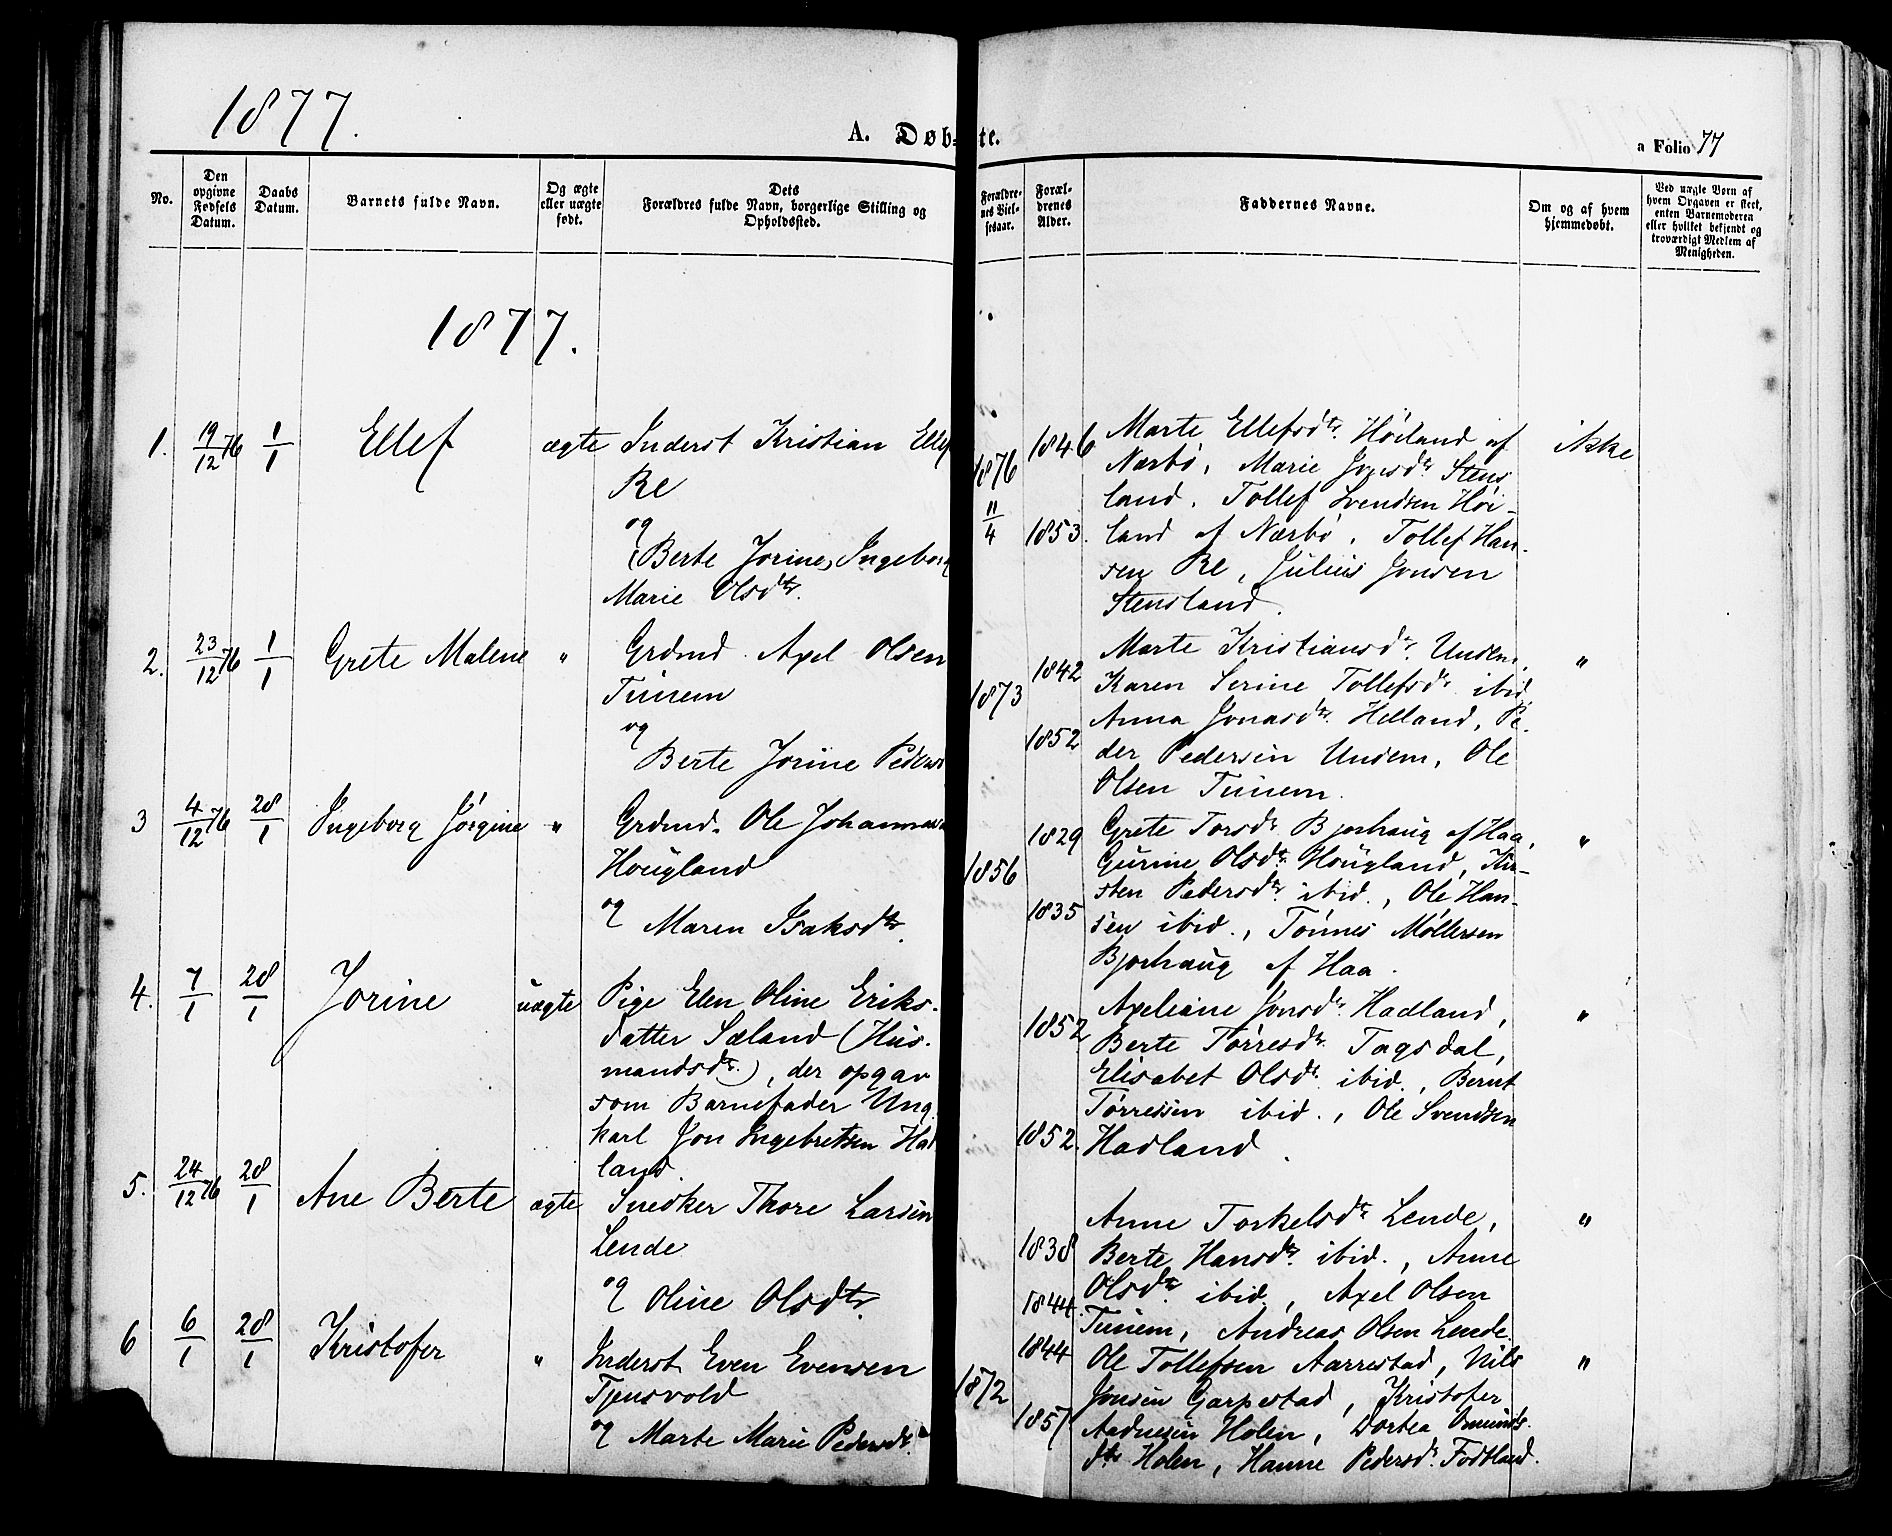 1877.
A. Døb-te.
a Folio 77
No.
Den
opgivne
Fødsels
Datum.
Daabs
Datum.
Barnets fulde Navn.
Og ægte
eller uægte
født.
Dets
Forældres fulde Navn, borgerlige Stilling og
Opholdssted.
Forældre-
nes Viel-
sesaar.
Foræl-
drenes
Alder.
Faddernes Navne.
Om og af hvem
hjemmedøbt.
Ved uægte Børn af
hvem Opgaven er skeet,
enten Barnemoderen
eller hvilket bekjendt og
troværdigt Medlem af
Menigheden.
1877.
1. 19/12 76 1/1 Ellef ægte Inderst Kristian Ellef
Re
og
(Berte Jorine) Ingeborg
Marie Olsdtr.
1876
11/4
1846
1853.
Marte Ellefsdtr. Höiland af
Nærbö, Marie Jonsdtr Stens
land. Tollef Svendsen Höi-
land af Nærbö, Tollef Han-
sen Re, Julius Jonsen
Stensland.
ikke
2. 23/12 76 1/1 Grete Malene " Grdmd. Axel Olsen
Tunem
og
Berte Jorine Peders
1873
1842
1852
Marte Kristiansdtr. Undem,
Karen Serine Tollefsdtr ibid,
Anna Jonasdtr. Helland, Pe-
der Pedersen Undem, Ole
Olsen Tunem.
"
3 4/12 76 28/1 Ingeborg Jörgine " Grdmd. Ole Johannes
Hougland
og Maren Isaksdtr.
1856
1829
1835
Grete Torsdtr Bjorhaug af Haa,
Gurine Olsdtr. Hougland, Kir-
sten Pedersdtr. ibid., Ole Han-
sen ibid., Tönnes Möllersen
Bjorhaug af Haa.
"
4. 7/1 28/1 Jorine uægte Pige Elen Oline Eriks-
datter Sæland (Hus-
mandsdtr.), der opgav
som Barnefader Ung
karl Jon Ingebretsen Had
land.
1852
1852.
Axeliane Jonsdtr. Hadland,
Berte Törresdtr. Tagsdal,
Elisabet Olsdtr. ibid., Bernt
Törressen ibid., Ole Svendsen
Hadland.
"
5. 24/12 76 28/1 Ane Berte ægte Snedker Thore Larsen
Lende
og Oline Olsdtr.
1838
1844.
Anne Torkelsdtr Lende,
Berte Hansdtr. ibid., Anne
Olsdtr. ibid., Axel Olsen
Tunem, Andreas Olsen Lende.
"
6 6/1 28/1 Kristofer " Inderst Even Evensen
Tjensvold
og Marte Marie Pedersdtr.
1872
1844
1851
Ole Tollefsen Aarrestad, Nils
Jonsen Garpestad, Kristofer
Aadnesen Holen, Dortea Omunds-
dtr Holen, Hanne Pedersdtr. Fodtland.
"